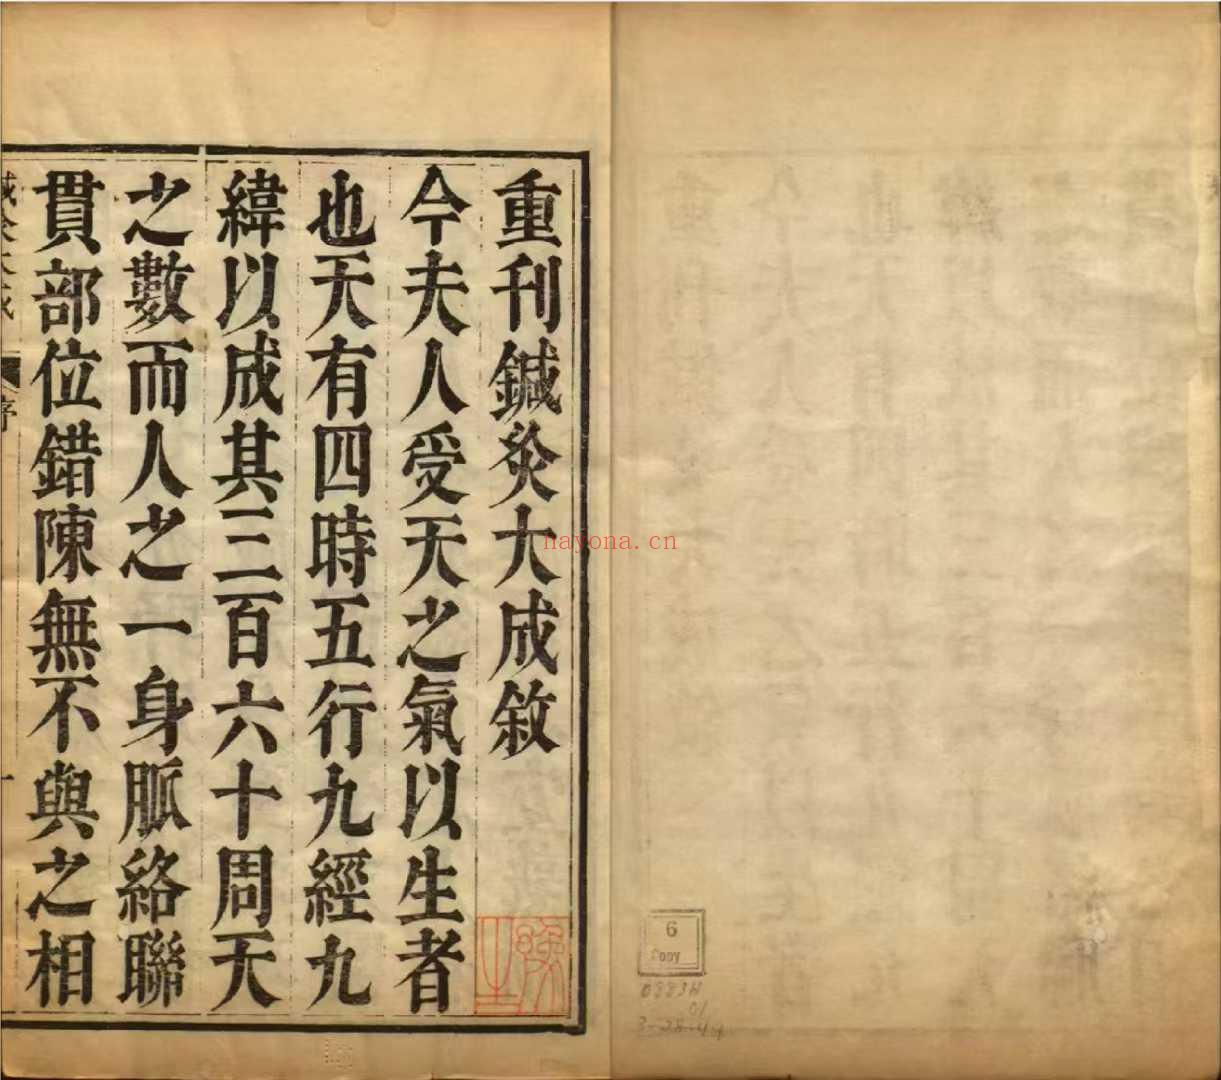 重刊鍼灸大成敘
今夫人受天之氣以生者
也天有四時五行九經九
緯以成其三百六十周天
之數而人之一身脈絡聯
貫部位錯陳無不與之相
序
一
hayona.cn
6
Copy